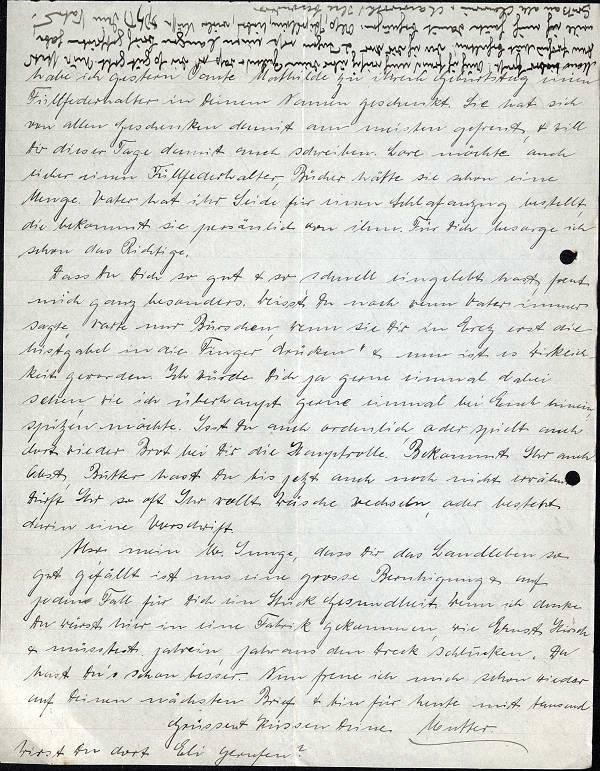 habe ich gestern Tante Mathilde zu ihrem Geburtstag einen
Füllfederhalter in Deinem Namen geschenkt. Sie hat sich
von allen Geschenken damit am meisten gefreut, & will
Dir dieser Tage damit auch schreiben. Lore möchte auch
lieber einen Füllfederhalter, Bücher hätte sie schon eine
Menge. Vater hat ihr Seide für einen Schlafanzug bestellt,
die bekommt sie persönlich von ihm. Für Dich besorge ich
schon das Richtige.
Dass Du Dich so gut & so schnell eingelebt hast, freut
mich ganz besonders. Weisst Du noch wenn Vater immer
sagte "warte nur Bürschen, wenn sie Dir in Erez erst die
Mistgabel in die Finger drücken" & nun ist es Wirklich-
keit geworden. Ich würde Dich ja gerne einmal dabei
sehen, wie ich überhaupt gerne einmal bei Euch hinein
spitzen möchte. Isst Du auch ordentlich oder spielt auch
dort wieder Brot bei Dir die Hauptrolle. Bekommt Ihr auch
Obst, Butter hast Du bis jetzt auch noch nicht erwähnt
Dürft Ihr so oft Ihr wollt Wäsche wechseln, oder besteht
darin eine Vorschrift.
Also mein lb. Junge, dass Dir das Landleben so
gut gefällt ist uns eine grosse Beruhigung & auf
jeden Fall für Dich ein Stück Gesundheit. Wenn ich denke
Du wärst hier in eine Fabrik gekommen, wie Ernst Hirsch
& müsstest jahrein, jahraus den Dreck schlucken. Da
hast Du's schon besser. Nun freue ich mich schon wieder
auf Deinen nächsten Brief & bin für heute mit tausend
Grüssen & Küssen Deine Mutter.
Wirst Du dort Eli gerufen?